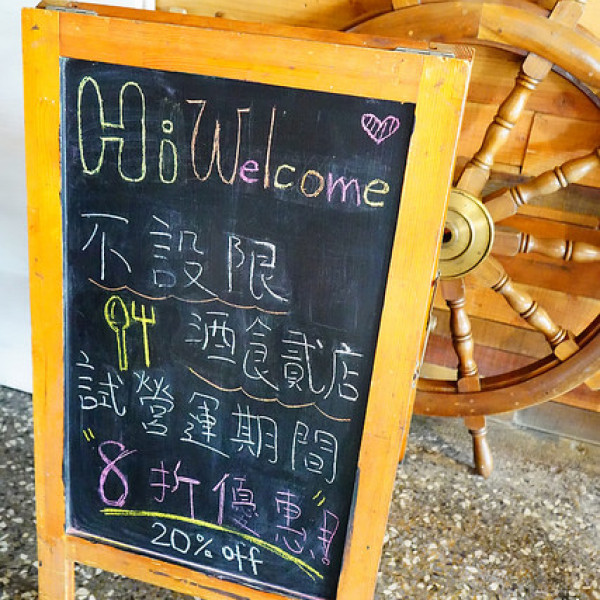 Hi Welcome
不設限
酒食貳店
試營運期間
"8折優惠!"
20% off